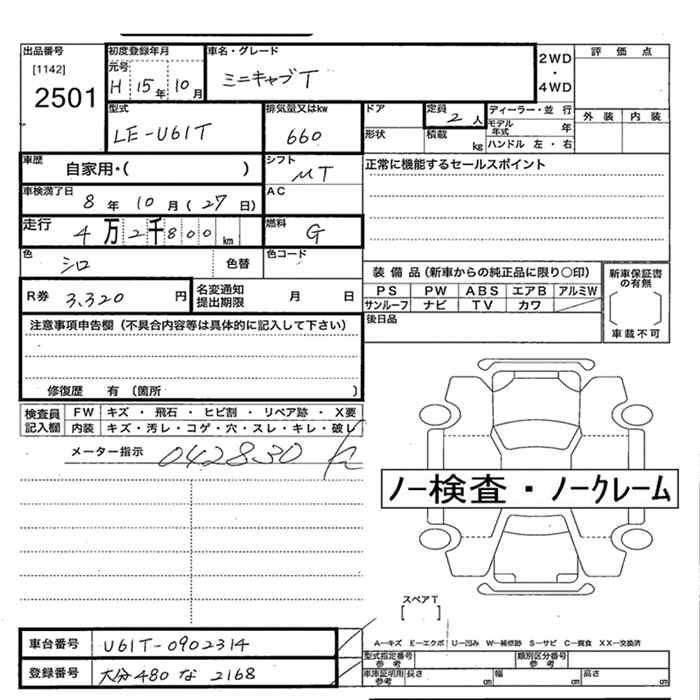 出品番号
[1142]
2501
初度登録年月
元号
H 15年 10月
車名・グレード
ミニキャブT
2WD
・
4WD
評価点
外装 内装
型式
LE-U61T
排気量又はkw
660
ドア
形状
定員
2人
積載 kg
ディーラー・並行
モデル年式 年
ハンドル 左・右
車歴
自家用・( )
シフト
MT
正常に機能するセールスポイント
車検満了日
8年 10月(27日)
AC
走行
4万2千800km
燃料
G
色
シロ
色替
色コード
R券 3,320 円
名変通知
提出期限
月 日
装備品(新車からの純正品に限り○印)
PS PW ABS エアB アルミW
サンルーフ ナビ TV カワ
新車保証書
の有無
[ ]
車載不可
後日品
注意事項申告欄(不具合内容等は具体的に記入して下さい)
修復歴 有〔箇所 〕
検査員
記入欄
FW キズ・飛石・ヒビ割・リペア跡・X要
内装 キズ・汚レ・コゲ・穴・スレ・キレ・破レ
メーター指示 042830
ノー検査・ノークレーム
スペアT
[ ]
A-キズ E-エクボ U-凹み W-補修跡 S-サビ C-腐食 XX-交換済
車台番号 U61T-0902314
登録番号 大分480 な 2168
型式指定番号
参考
類別区分番号
参考
車庫証明用
参考
長さ cm 幅 cm 高さ cm